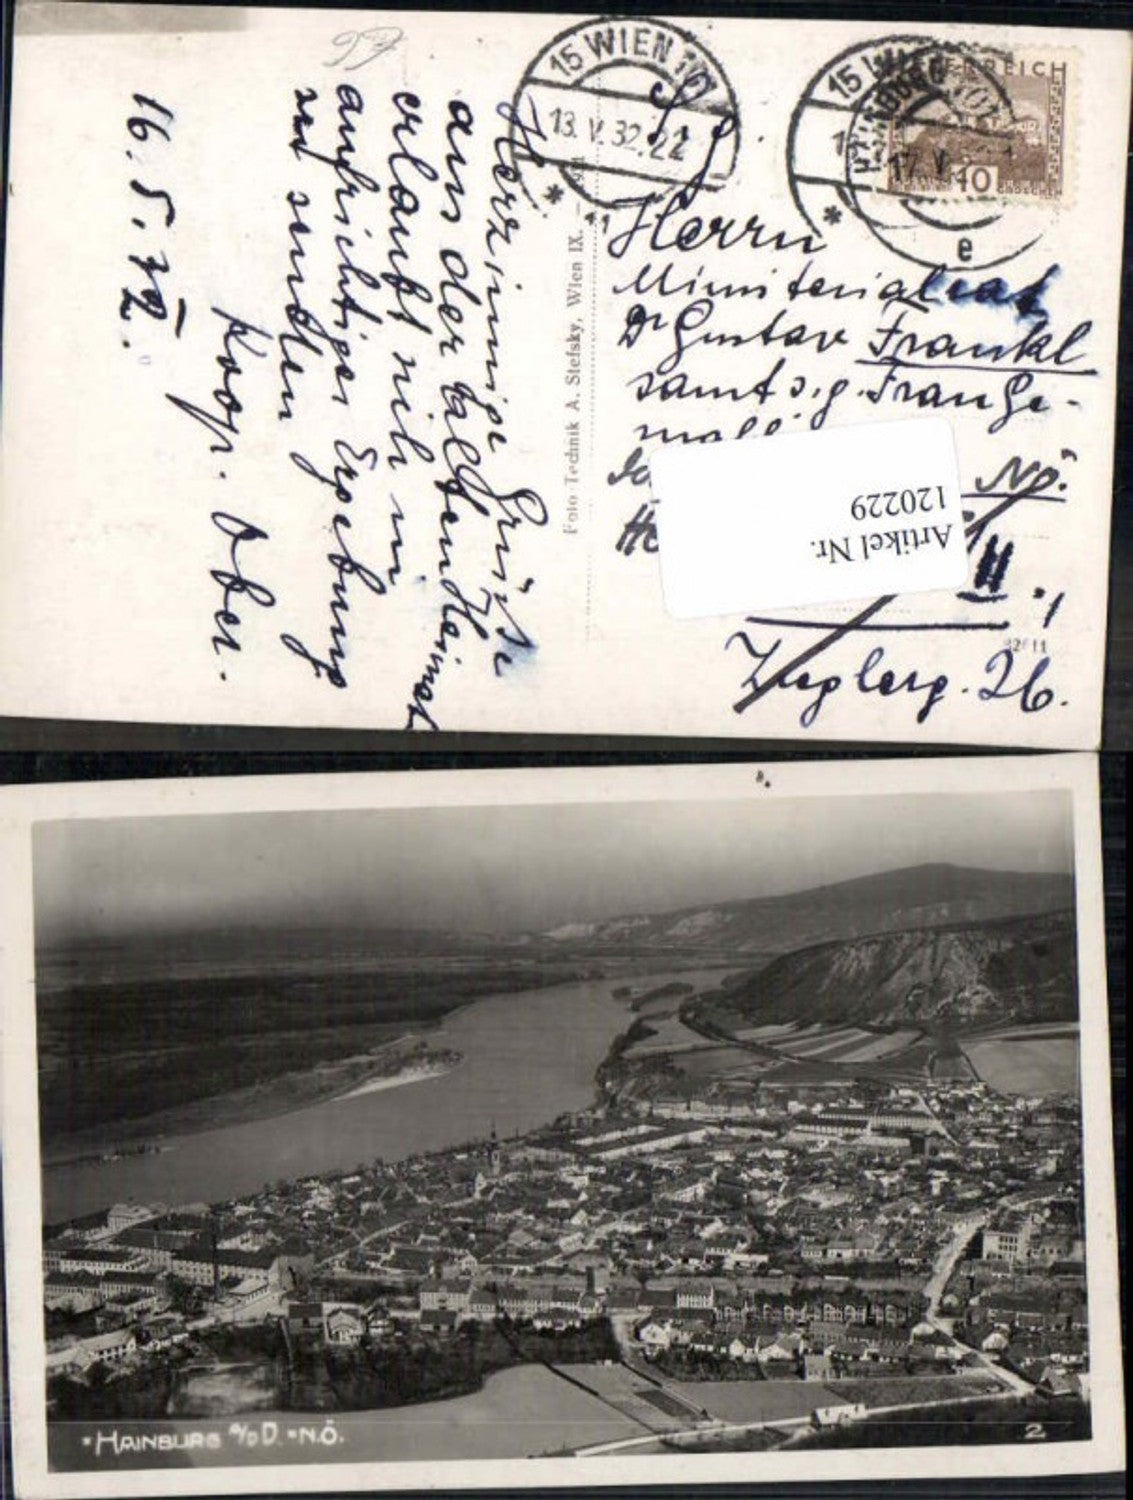 Herzinnige Grüsse
aus der alten Heimat
erlaubt sich in
aufrichtiger Ergebung
senden
Koop. Ober.
16. 5. 32.
Foto Technik A. Stefsky, Wien IX.
15 WIEN 101
13. V. 32. 22
* *
15 WIEN
17. V
e
ÖSTERREICH
40
GROSCHEN
S. g.
Herrn
Ministerialrat
Dr Gustav Frankl
samt s. g. Frau Ge-
mahl
NÖ.
Artikel Nr.
120229
Zieglerg. 26.
HAINBURG a/D. N.Ö.
2